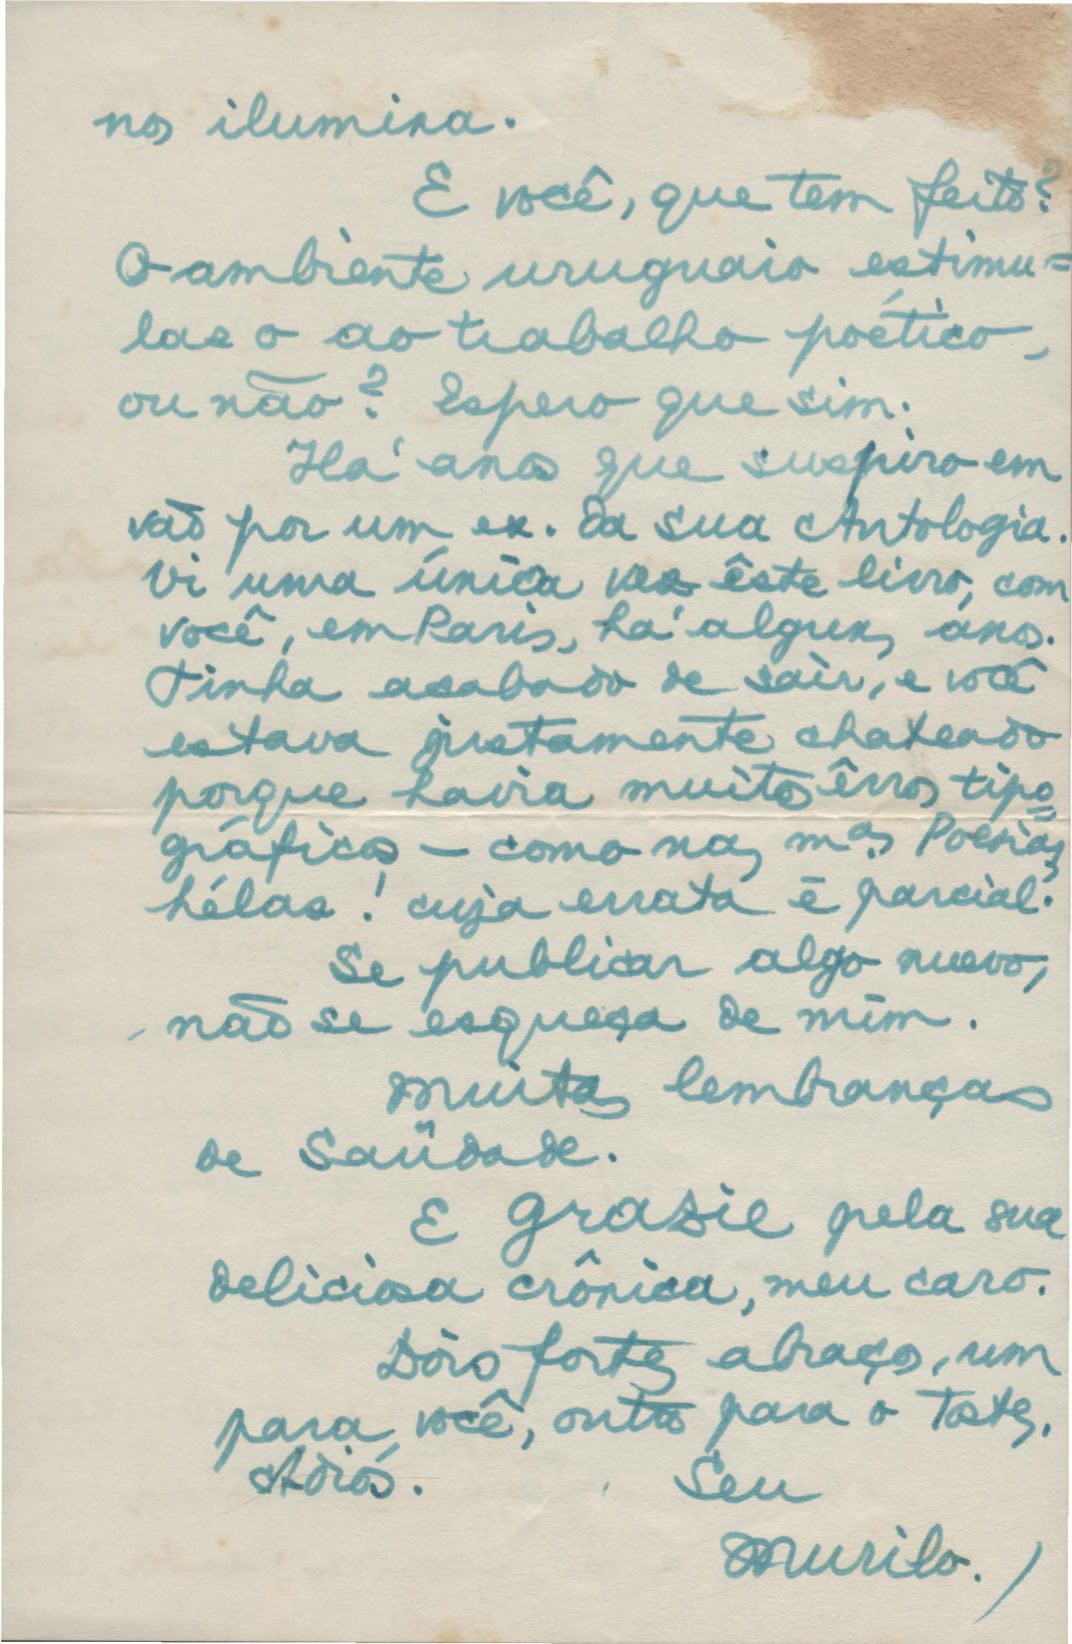 nos ilumina.
E você, que tem feito?
O ambiente uruguaio estimu=
la-o ao trabalho poético,
ou não? Espero que sim.
Há anos que suspiro em
vão por um ex. da sua Antologia.
Vi uma única vez êste livro, com
você, em Paris, há alguns anos.
Tinha acabado de sair, e você
estava justamente chateado
porque havia muitos êrros tipo=
gráficos – como nas m.as Poesias,
hélas! cuja errata é parcial.
Se publicar algo nuevo,
não se esqueça de mim.
Muitas lembranças
de Saüdade.
E grazie pela sua
deliciosa crônica, meu caro.
Dois fortes abraços, um
para você, outro para o
Adiós. Seu
Murilo.